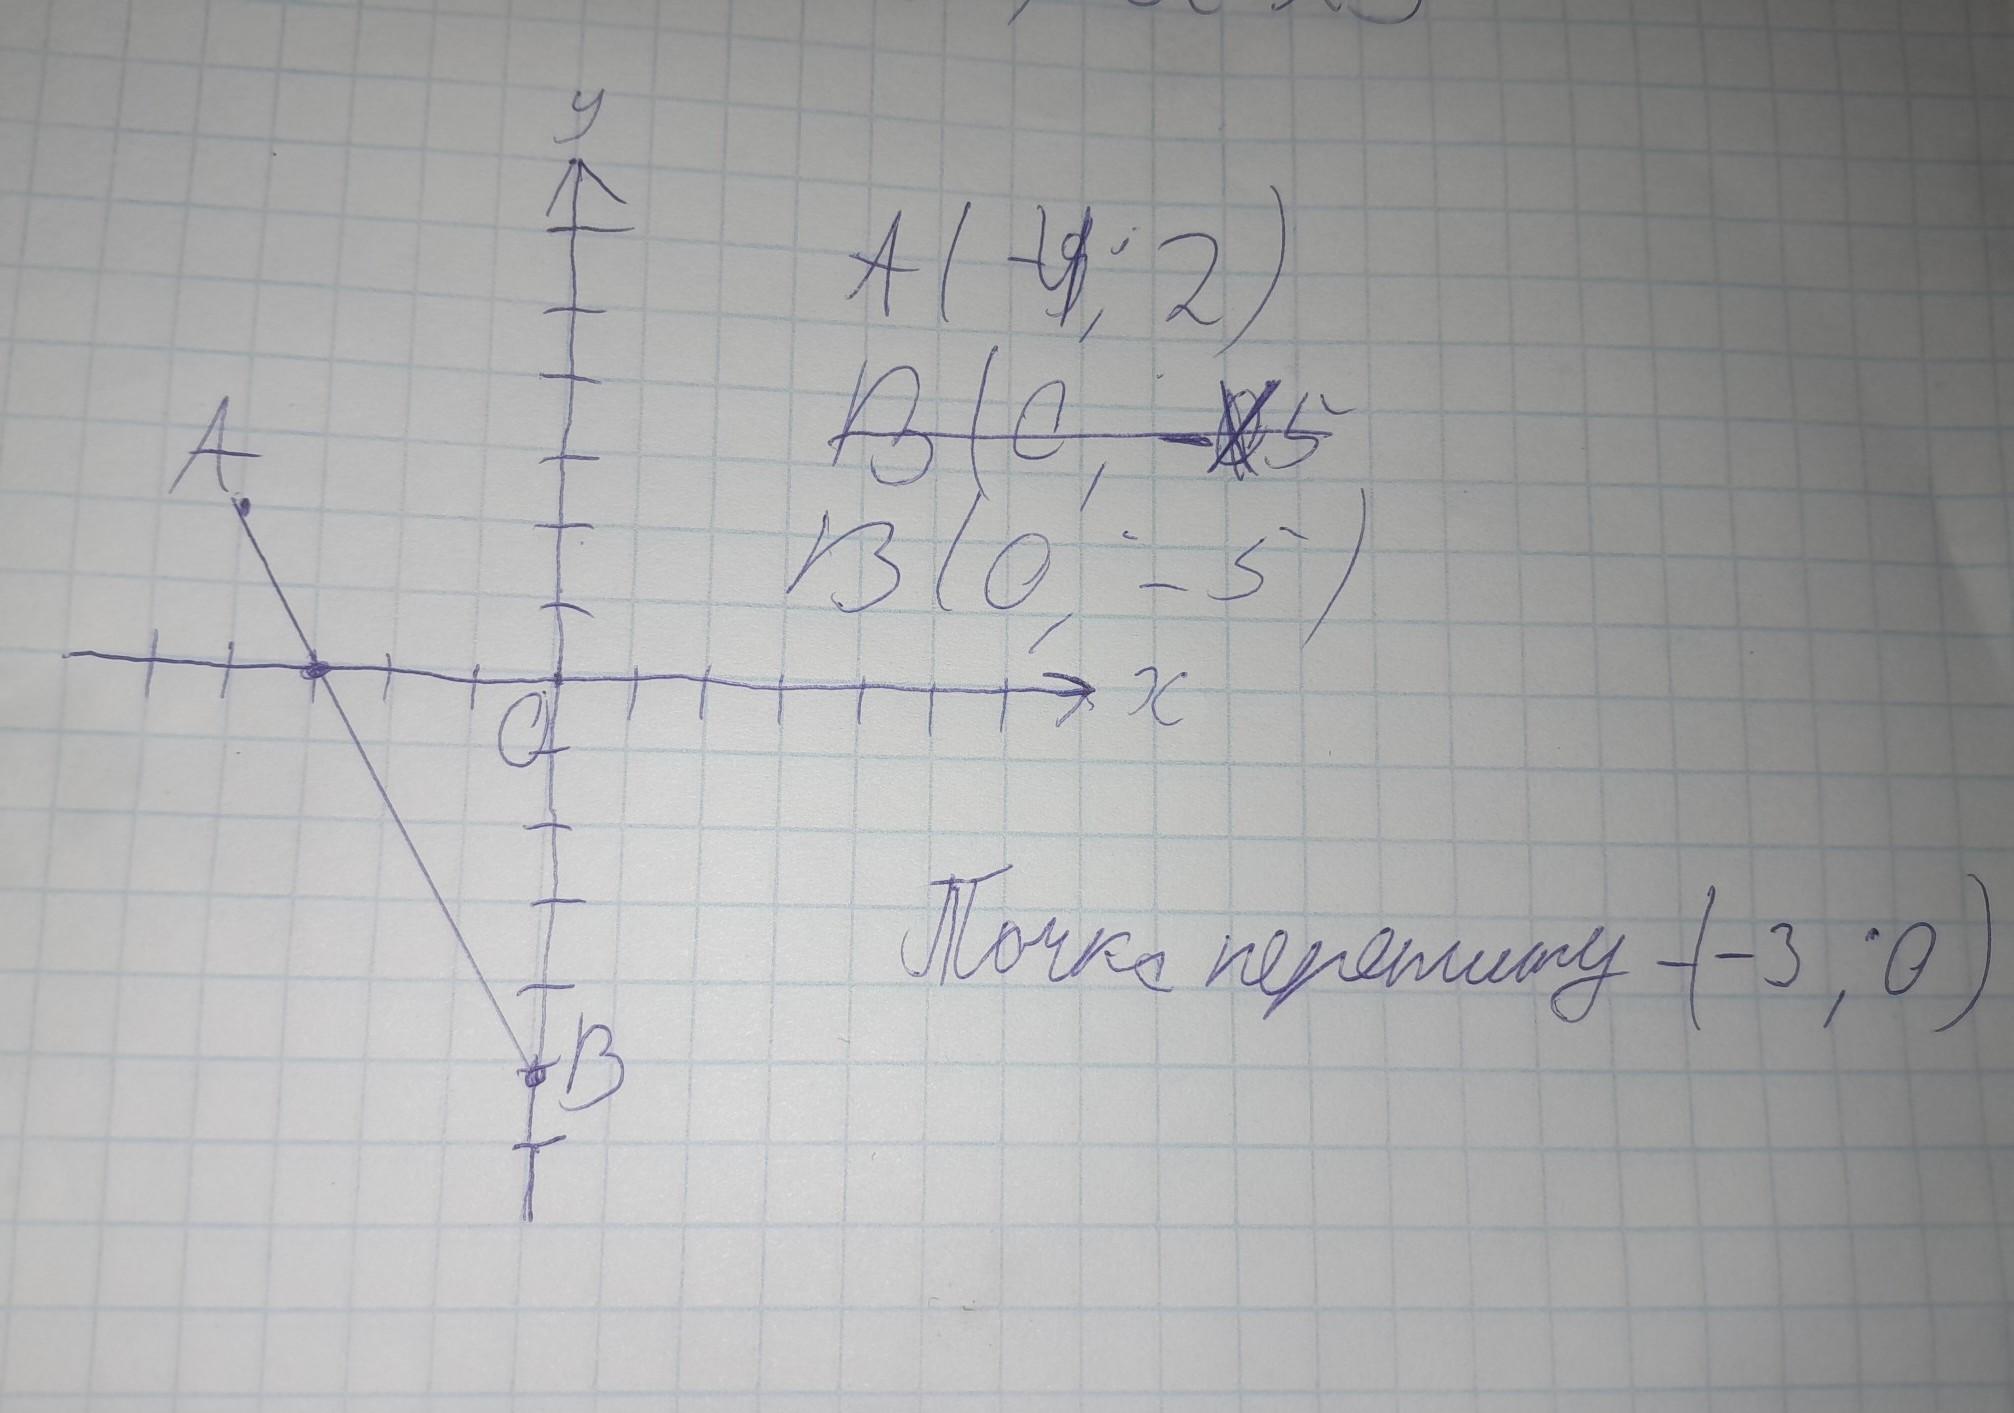 y
A(-4; 2)
B(0; -5
B(0; -5)
A
x
O
B
Точка перетину - (-3; 0)